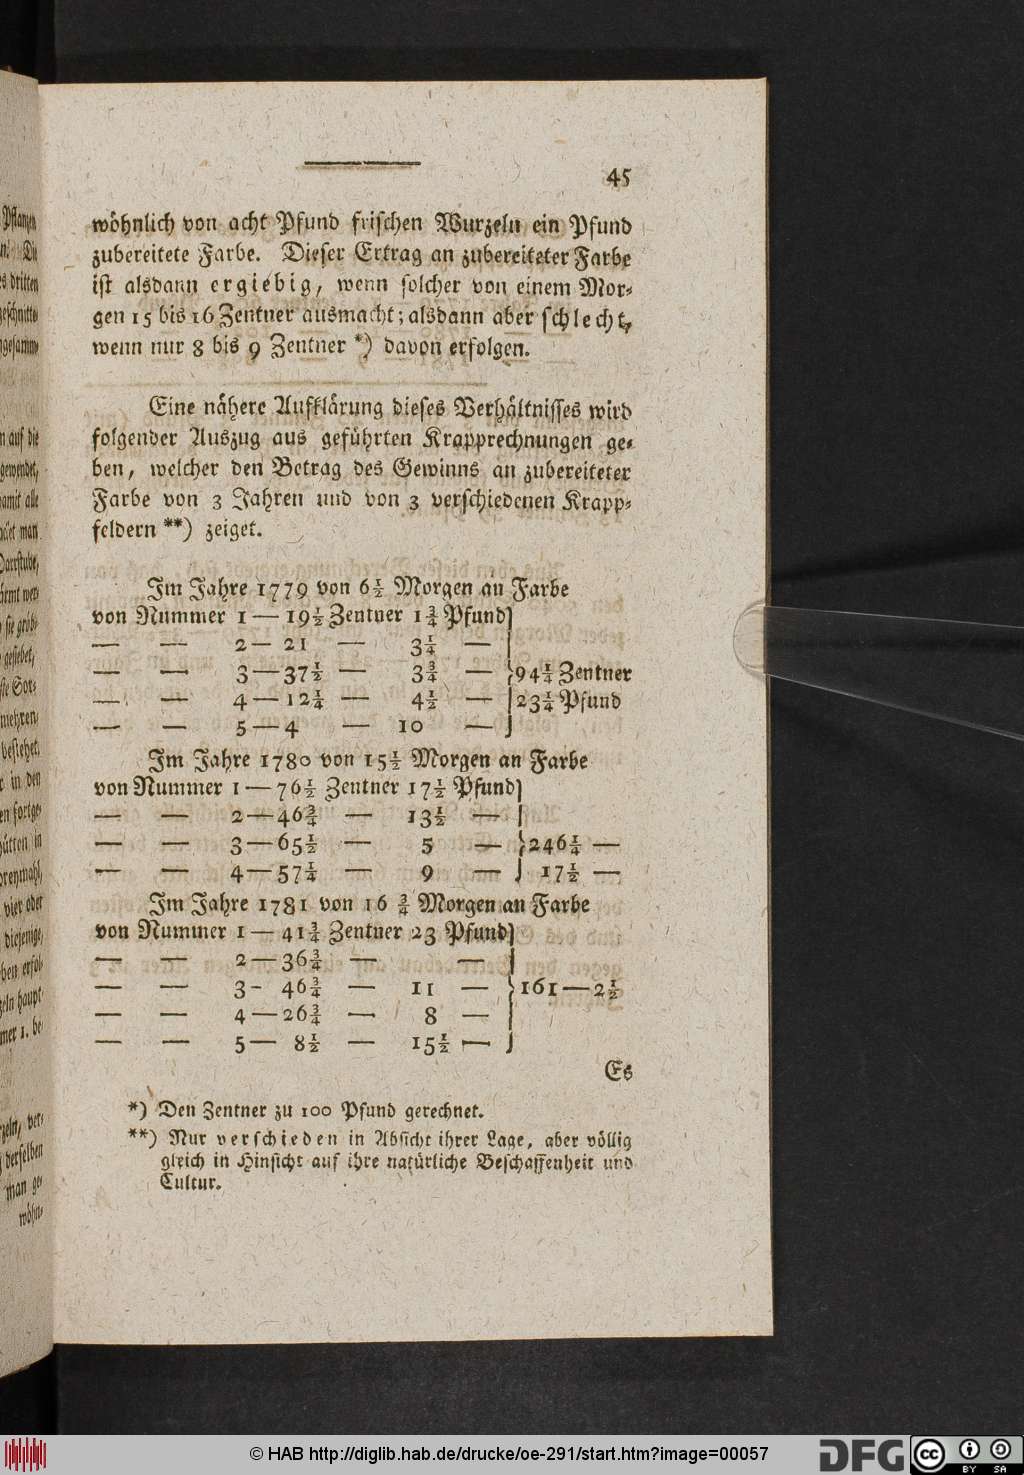 45
wöhnlich von acht Pfund frischen Wurzeln ein Pfund
zubereitete Farbe. Dieser Ertrag an zubereiteter Farbe
ist alsdann ergiebig, wenn solcher von einem Mor-
gen 15 bis 16 Zentner ausmacht; alsdann aber schlecht,
wenn nur 8 bis 9 Zentner *) davon erfolgen.
Eine nähere Aufklärung dieses Verhältnisses wird
folgender Auszug aus geführten Krapprechnungen ge-
ben, welcher den Betrag des Gewinns an zubereiteter
Farbe von 3 Jahren und von 3 verschiedenen Krapp-
feldern **) zeiget.
Im Jahre 1779 von 6½ Morgen an Farbe
von Nummer 1 — 19½ Zentner 1¾ Pfund
— — 2 — 21 — 3¼ —
— — 3 — 37½ — 3¾ — } 94¼ Zentner
— — 4 — 12¼ — 4½ — 23¼ Pfund
— — 5 — 4 — 10 —
Im Jahre 1780 von 15½ Morgen an Farbe
von Nummer 1 — 76½ Zentner 17½ Pfund
— — 2 — 46¾ — 13½ —
— — 3 — 65½ — 5 — } 246¼ —
— — 4 — 57¼ — 9 — 17½ —
Im Jahre 1781 von 16 ¾ Morgen an Farbe
von Nummer 1 — 41¾ Zentner 23 Pfund
— — 2 — 36¾ — —
— — 3 - 46¾ — 11 — } 161 — 2½
— — 4 — 26¾ — 8 —
— — 5 — 8½ — 15½ —
Es
*) Den Zentner zu 100 Pfund gerechnet.
**) Nur verschieden in Absicht ihrer Lage, aber völlig
gleich in Hinsicht auf ihre natürliche Beschaffenheit und
Cultur.
© HAB http://diglib.hab.de/drucke/oe-291/start.htm?image=00057
DFG
cc BY SA